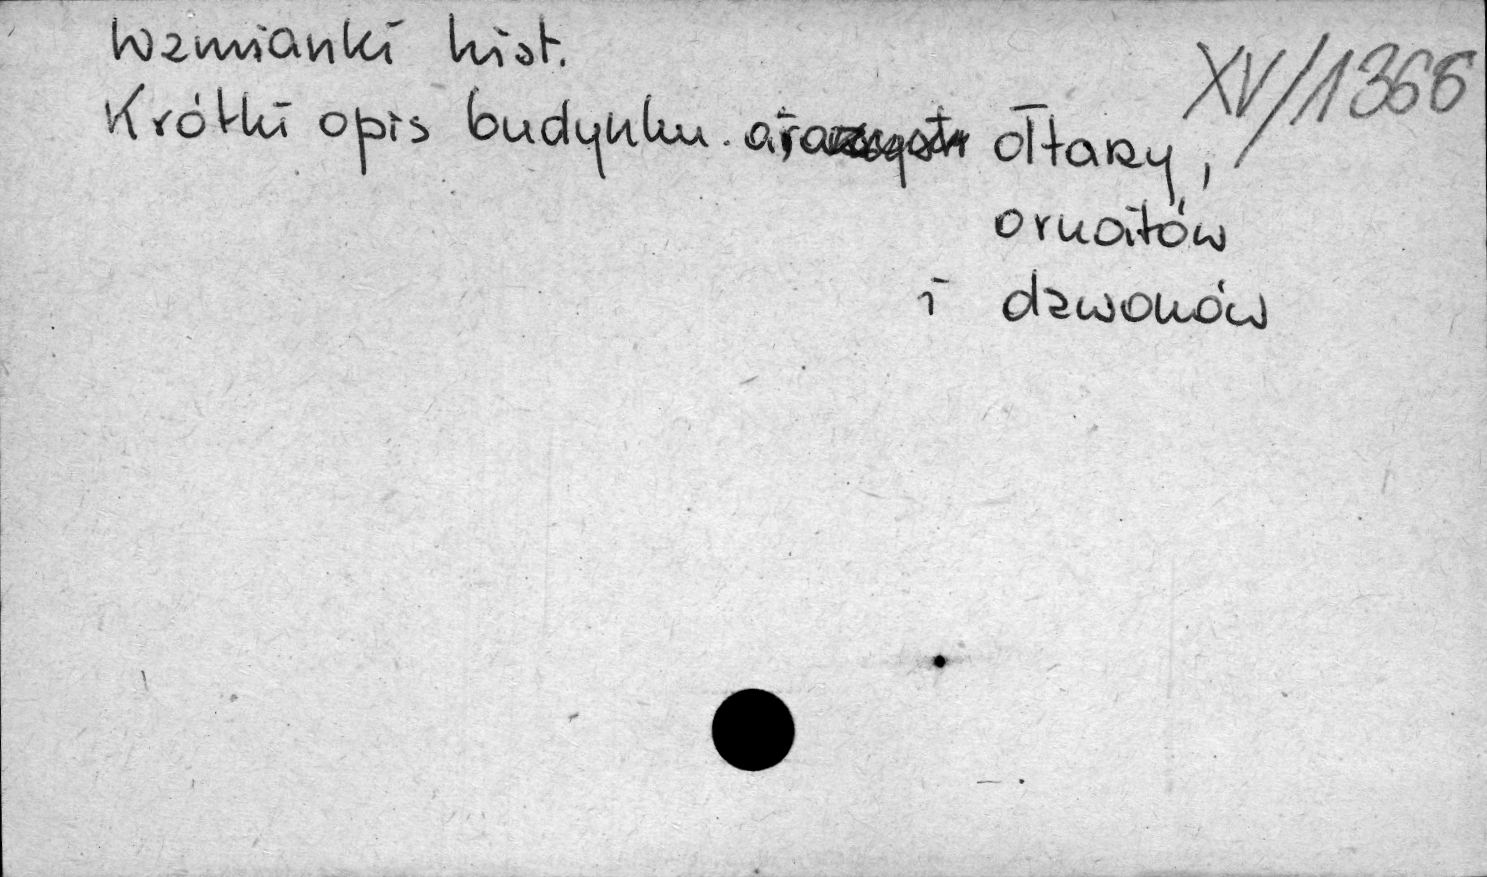 Wzmianki hist.
XV/1366
Krótki opis budynku. ołtarzy,
ornatów
i dzwonów